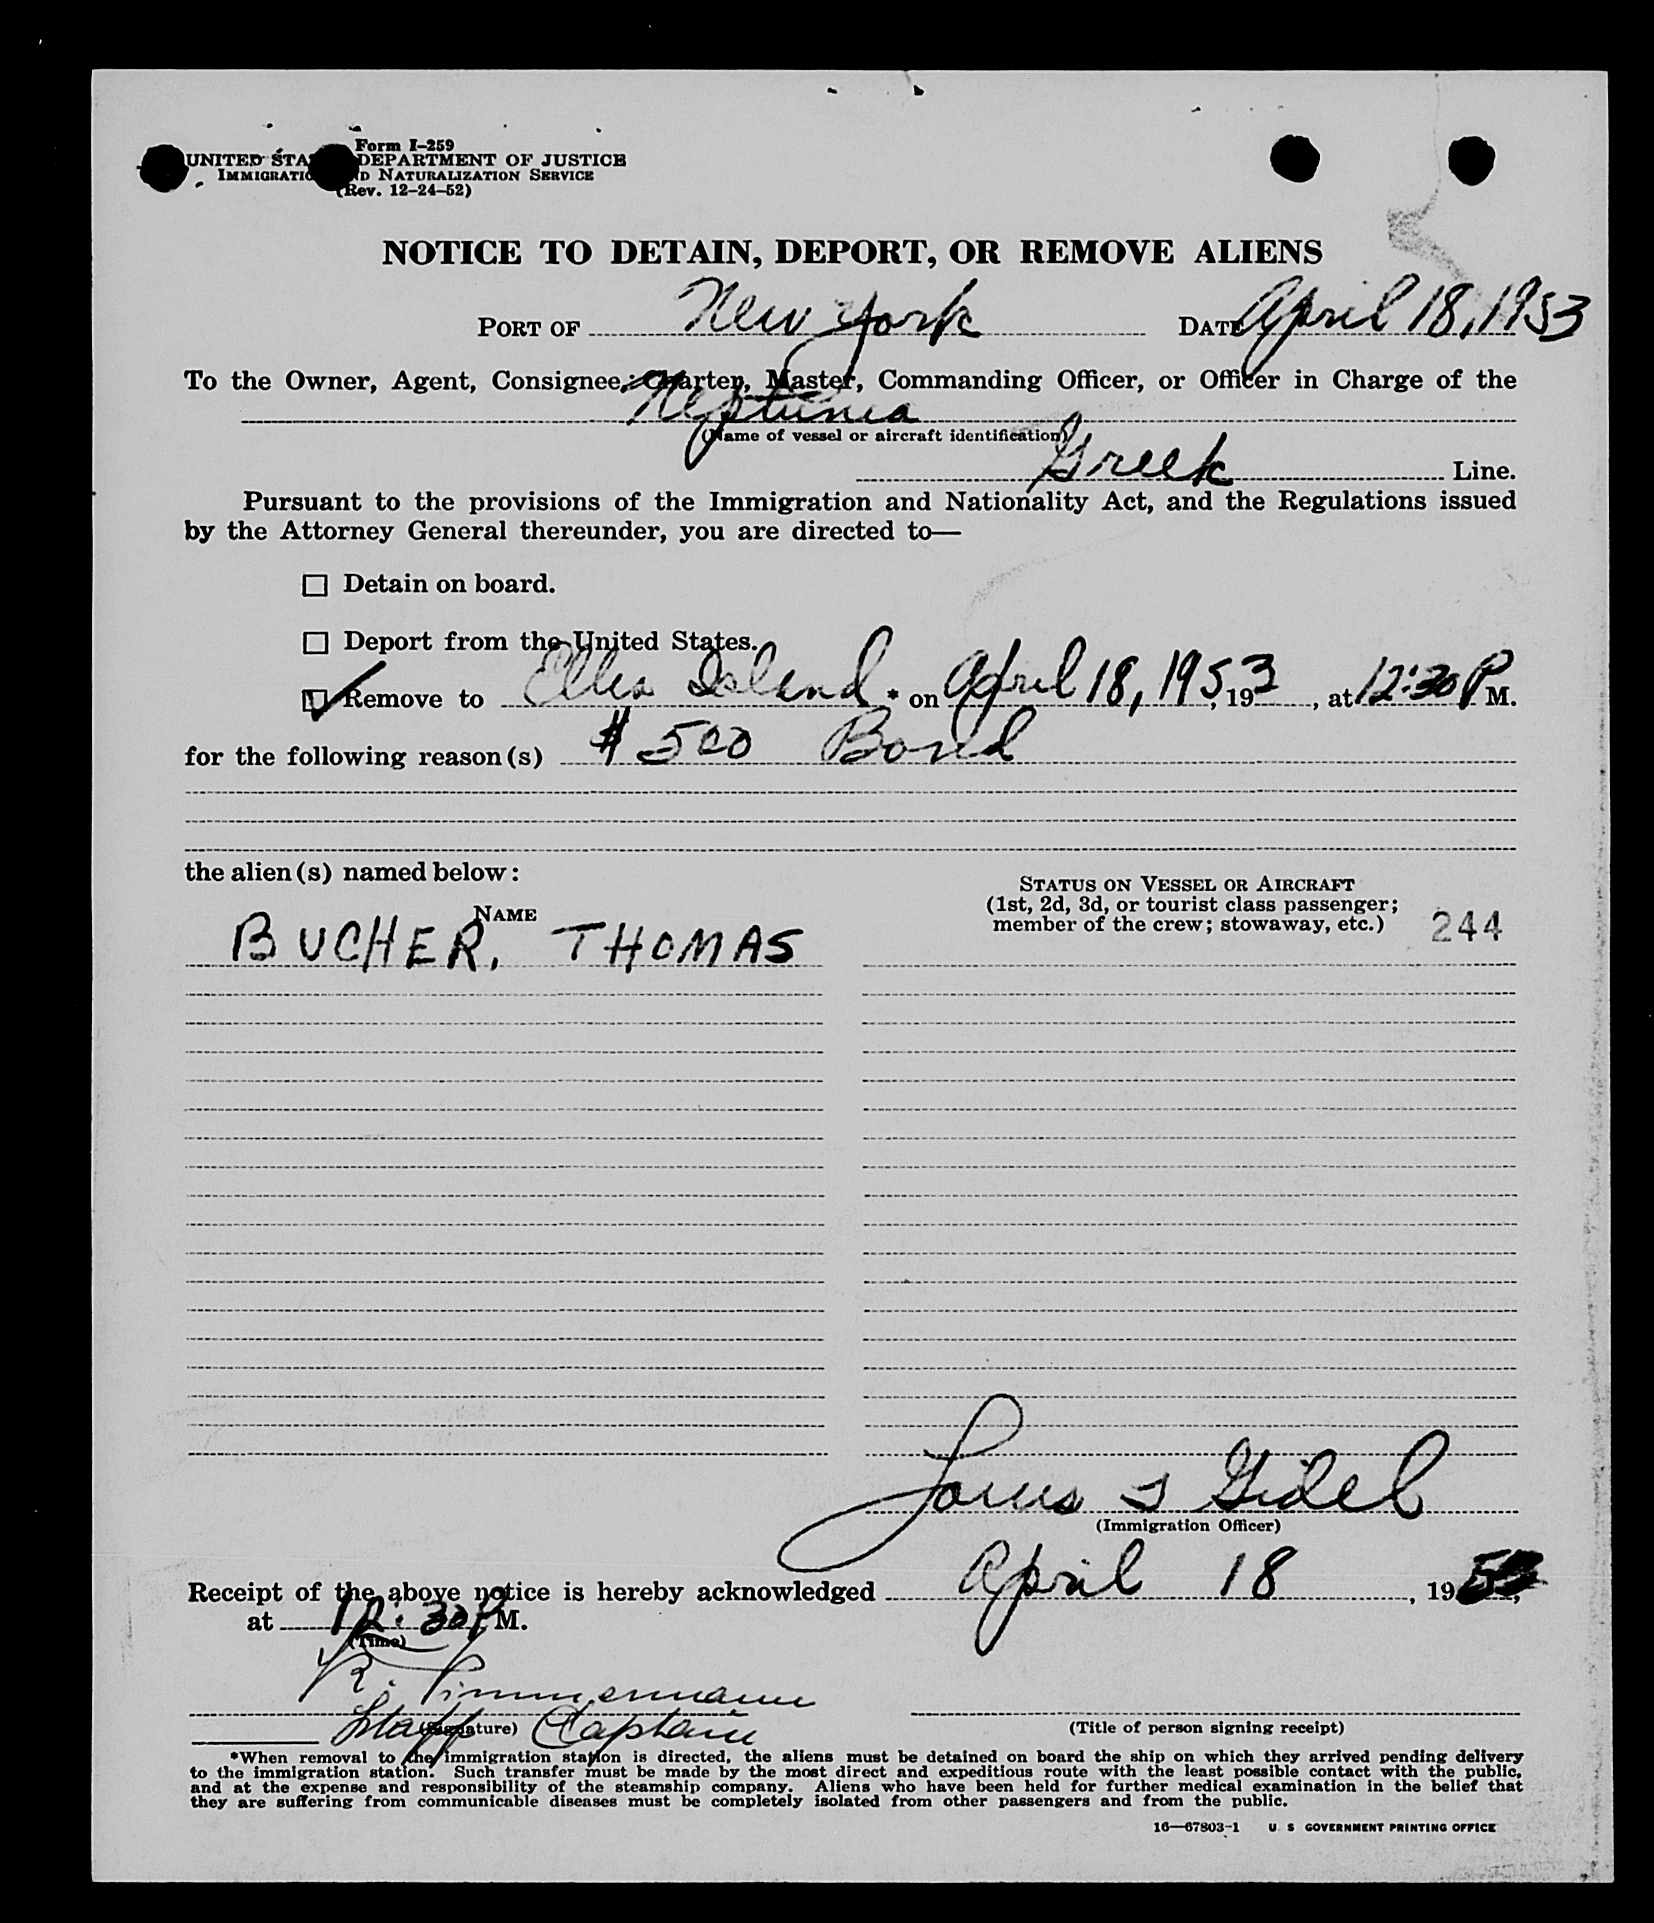 Form I-259
UNITED STA DEPARTMENT OF JUSTICE
IMMIGRATIO ND NATURALIZATION SERVICE
(Rev. 12-24-52)
NOTICE TO DETAIN, DEPORT, OR REMOVE ALIENS
PORT OF New York DATE April 18, 1953
To the Owner, Agent, Consignee, Charter, Master, Commanding Officer, or Officer in Charge of the
Neptunia
(Name of vessel or aircraft identification)
Greek Line.
Pursuant to the provisions of the Immigration and Nationality Act, and the Regulations issued
by the Attorney General thereunder, you are directed to—
Detain on board.
Deport from the United States.
Remove to Ellis Island * on April 18, 195, 193, at 12:30 P M.
for the following reason(s) $500 Bond
the alien(s) named below:
NAME
STATUS ON VESSEL OR AIRCRAFT
(1st, 2d, 3d, or tourist class passenger;
member of the crew; stowaway, etc.) 244
BUCHER, THOMAS
Louis S Gidel
(Immigration Officer)
Receipt of the above notice is hereby acknowledged April 18, 1953,
at 12:30 P M.
(Time)
K. Timmermann
Staff Captain
(Signature)
(Title of person signing receipt)
*When removal to the immigration station is directed, the aliens must be detained on board the ship on which they arrived pending delivery
to the immigration station. Such transfer must be made by the most direct and expeditious route with the least possible contact with the public,
and at the expense and responsibility of the steamship company. Aliens who have been held for further medical examination in the belief that
they are suffering from communicable diseases must be completely isolated from other passengers and from the public.
16—67803-1 U S GOVERNMENT PRINTING OFFICE